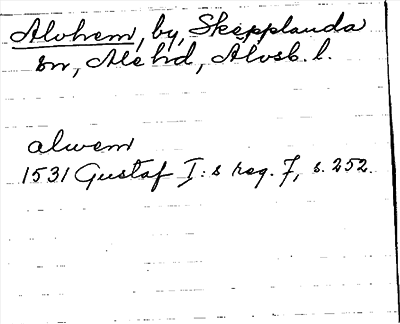 Alvhem, by, Skepplanda
sn, Ale hd, Älvsb. l.
alwem
1531 Gustaf I:s reg. 7, s. 252.